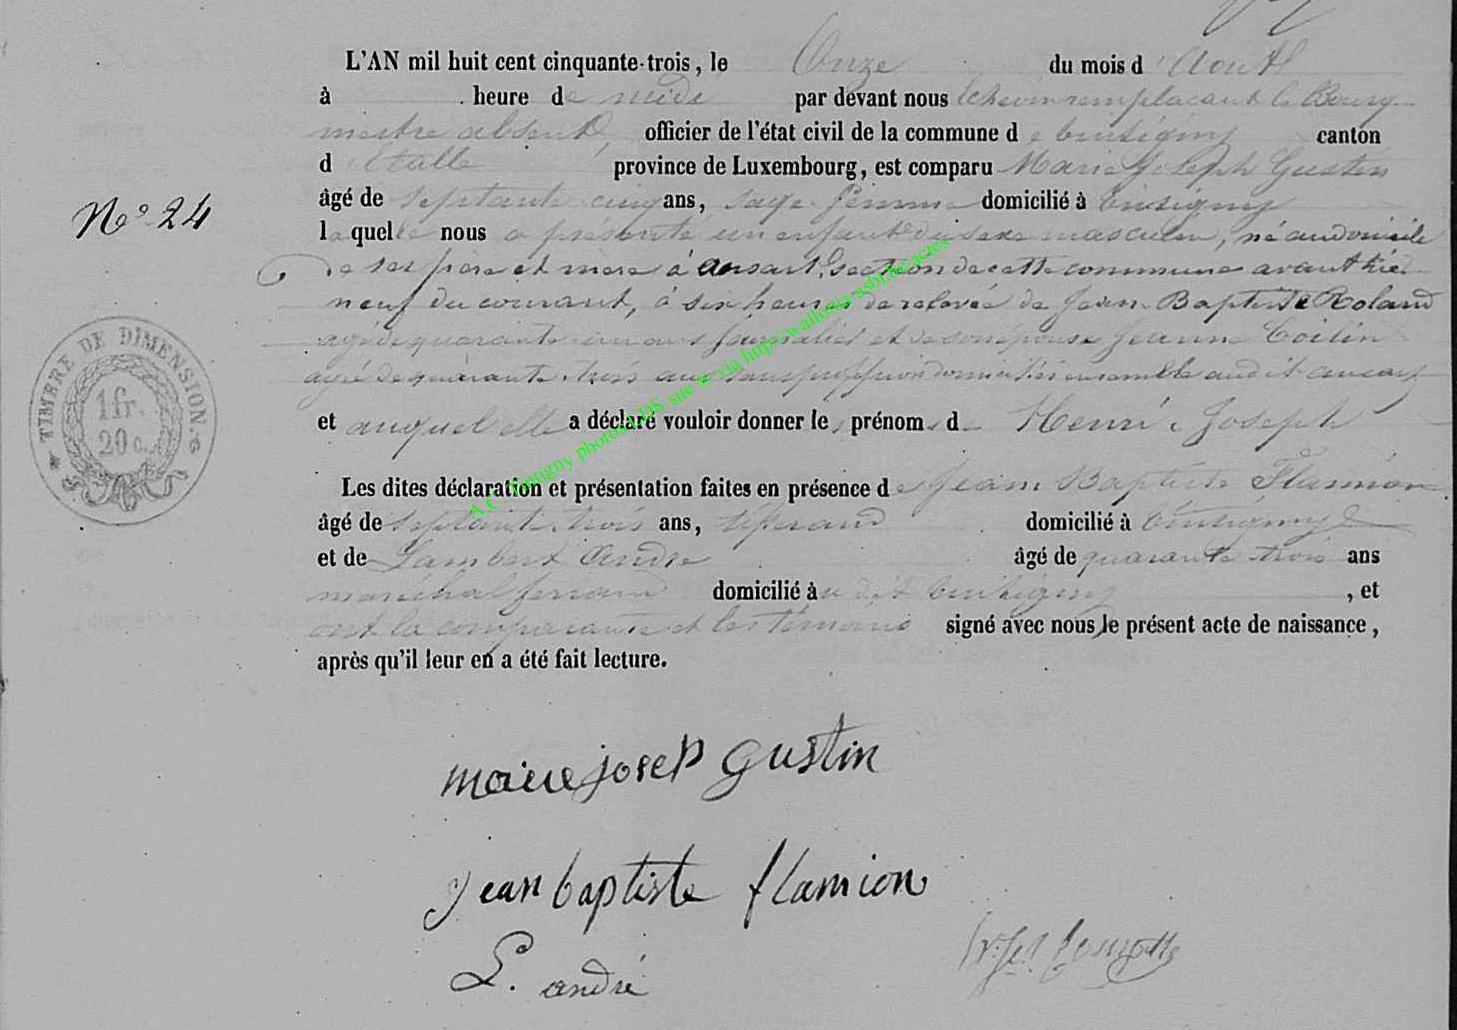 L'AN mil huit cent cinquante-trois, le Onze du mois d'Aout
à heure de midi par devant nous Echevin remplacant le Bourg-
mestre absent, officier de l'état civil de la commune de tintigny canton
d'Etalle province de Luxembourg, est comparu Marie Joseph Gustin
âgé de septante cinq ans, sage femme domicilié à tintigny
No 24
laquelle nous a présenté un enfant du sexe masculin, né au domicile
de ses père et mère à ansart, section de cette commune avant hier
neuf du courant, à six heures de relevée de Jean Baptiste Roland
agé de quarante ans journalier et de son épouse Jeanne
agée de quarante trois ans sans profession domiciliés ensemble audit ansart
et auquel elle a déclaré vouloir donner les prénoms de Henri Joseph
TIMBRE DE DIMENSION.
1 fr.
20 c.
Les dites déclaration et présentation faites en présence de Jean Baptiste Flamion
âgé de septante trois ans, tisserand domicilié à tintigny
et de Lambert André âgé de quarante trois ans
maréchal ferrant domicilié au dit tintigny, et
ont la comparante et les témoins signé avec nous le présent acte de naissance,
après qu'il leur en a été fait lecture.
marie josep gustin
jean baptiste flamion
L. andré
A.C. Tintigny photos LDS site via http://wallonia-asbl.be/actes